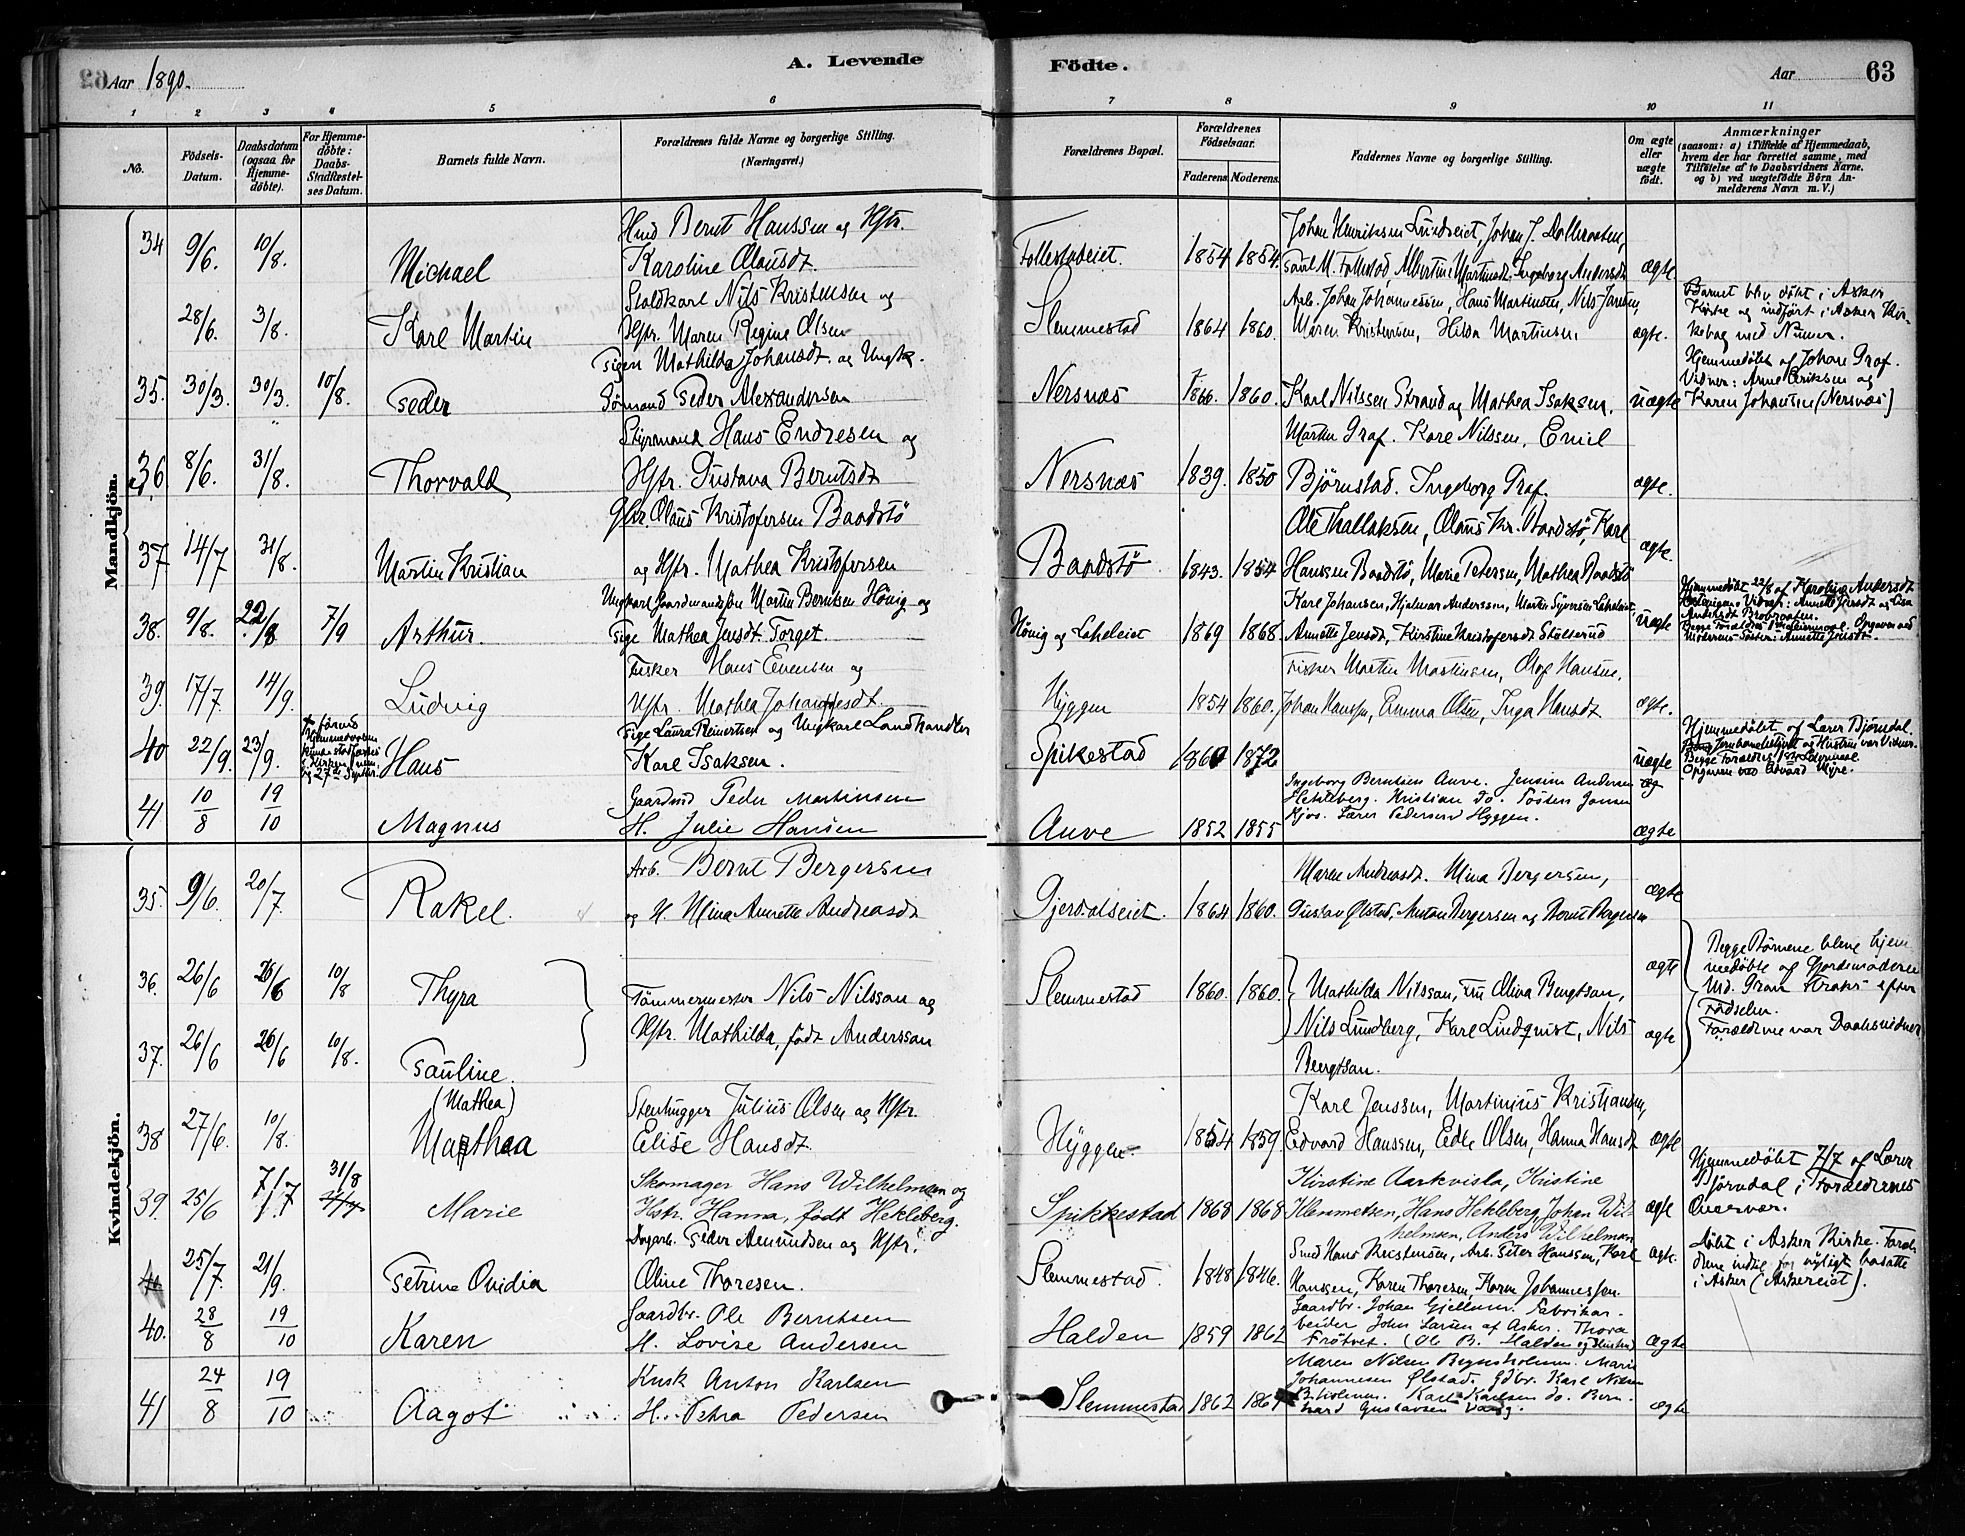 Aar 1890. A. Levende Födte. Aar 63
1 2 3 4 5 6 7 8 9 10 11
No.
Födsels-Datum.
Daabsdatum (ogsaa for Hjemme-döbte).
For Hjemme-döbte: Daabs-Stadfæstel-ses Datum.
Barnets fulde Navn.
Forældrenes fulde Navne og borgerlige Stilling. (Næringsvei.)
Forældrenes Bopæl.
Forældrenes Födselsaar.
Faderens. Moderens.
Faddernes Navne og borgerlige Stilling.
Om ægte eller uægte födt.
Anmærkninger
(saasom: a) i Tilfælde af Hjemmedaab,
hvem der har forrettet samme, med
Tilföielse af to Daabsvidners Navne,
og b) ved uægtefödte Börn An-
melderens Navn m. V.)
Mandkjön.
34 9/6. 10/8. Michael
Hmd Bernt Hanssen og Hstr.
Karoline Olausdt.
Follestadeiet. 1854 1854.
Johan Henriksen Lundseiet, Johan J.
Paul M. Follestad, Albertine Martinsdt. Ingeborg Andersdt
ægte
28/6. 3/8. Karl Martin
Staldkarl Nils Kristensen og
Hstr. Maren Regine Olsen
Slemmestad 1864 1860.
Arb. Johan Johannessen, Hans Martinsen, Nils Jansen,
Maren Kristensen, Hilda Martinsen
ægte.
Barnet blev döbt i Asker
Kirke og indfört i Asker Kir-
kebog med Numer.
35. 30/3. 30/3. 10/8. Peder
Pigen Mathilda Johansdt. og Ungk.
Sömand Peder Alexandersen
Nersnæs 1866. 1860.
Karl Nilssen Strand og Mathea Isaksen.
uægte
Hjemmedöbt af Johan Graf.
Vidner: Arne Eriksen og
Karen Johansen (Nersnæs)
36 8/6. 31/8. Thorvald
Styrmand Hans Endresen og
Hstr. Gustava Berntsdt
Nersnæs 1839. 1850
Martin Graf. Karl Nilssen, Emil
Björnstad. Ingeborg Graf.
ægte.
37 14/7 31/8. Martin Kristian
Gbr. Olaus Kristofersen Baadstö
og Hstr. Mathea Kristofersen
Baadstö 1843. 1854
Ole Thallaksen, Olaus Kr. Baadstö, Karl
Hanssen Baadstö, Marie Petersen, Mathea Baadstö
ægte.
38. 9/8. 22/8 7/9 Arthur.
Ungkarl Gaardmandssön Martin Berntsen Hönig og
Pige Mathea Jensdt. Torget.
Hönig og Laheleiet 1869 1868
Karl Johansen, Hjalmar Anderssen, Martin Syversen Laheleiet,
Annette Jensdt, Kirstine Kristofersdt Stölterud
uægte
Hjemmedöbt 22/8 af Karoline Andersdt
Vidner: Annette Jensdt og Lisa
Andersdt
Begge Forældres Leiermaal. Opgaven ved
Moderens Söster: Annette Jensdt.
39. 17/7. 14/9. Ludvig
Fisker Hans Evensen og
Hstr. Mathea Johannesdt.
Hyggen 1854 1860.
Fisker Martin Martinsen, Olaf Hansen,
Johan Hanssen, Emma Olsen, Inga Hansdt
ægte.
40 22/9. 23/9. Hans
Pige Laura Reinertsen og Ungkarl Landhandler
Karl Isaksen.
Spikestad 1860 1872
uægte
Hjemmedöbt af Lærer Björndal.
og Hustru var Vidner.
Begge Forældres 1ste Leiermaal
Opgaven ved Edvard Myre.
41 10/8 19/10 Magnus
Gaardmd Peder Martinsen
H. Julie Hansen
Auve 1852 1855
Ingeborg Berntsen Auve. Jensine Andersen
Hekleberg. Kristian do. Tosten Jonsen
Kjos. Lærer Pedersen Hyggen.
ægte
Kvindekjön.
35. 9/6. 20/7. Rakel.
Arb. Bernt Bergersen
og H. Mina Annette Andreasdt
Gjerdalseiet. 1864 1860.
Maren Andreasdt. Mina Bergersen,
Gustav Ölstad, Anton Bergersen og Bernt Bergersen
ægte
36. 26/6 26/6 10/8 Thyra
37. 26/6 26/6 10/8. Pauline.
Tömmermester Nils Nilsson og
Hstr. Mathilda, födt Andersson
Slemmestad 1860. 1860.
Mathilda Nilsson, Fru Oliva Bengtson,
Nils Lundberg, Karl Lindqvist, Nils
Bengtson.
ægte
ægte
Begge Börnene bleve hjem-
medöbte af Gjordemoderen
Md. Gran strax efter
Födselen.
Forældrene var Daabsvidner
38 27/6. 10/8. (Mathea)
Marthea
Stenhugger Julius Olsen og Hstr.
Elise Hansdt.
Hyggen 1854 1859.
Karl Jenssen, Martinius Kristiansen,
Edvard Hanssen, Edle Olsen, Hanna Hansdt
ægte
39. 25/6 7/7 31/8 Marie
Skomager Hans Wilhelmsen og
Hstr. Hanna, födt Hekleberg.
Spikkestad 1868 1868
Kirstine Aarkvisla, Kristine
Klemmetsen, Hans Hekleberg, Johan Wil-
helmsen, Anders Wilhelmsen
ægte
Hjemmedöbt 7/7 af Lærer
Björndal i Forældrenes
Nærvær.
25/7. 21/9. Petrine Ovidia
Dagarb. Peder Amundsen og Hstr.
Oline Thoresen.
Slemmestad. 1848 1846.
Smed Hans Kristensen, Arb. Peter Hanssen, Karl
Hanssen, Karen Thoresen, Karen Johannessen.
ægte.
Döbt i Asker Kirke. Foræl-
drene indtil for nyligt bosatte
i Asker (Askereiet).
40. 28/8 19/10 Karen
Gaardbr. Ole Berntsen
H. Lovise Andersen
Halden 1859 1862
Gaardbr. Johan Gjellum. Fabrikar-
beider John Larsen af Asker. Thora
Frötvet. (Ole B. Halden og Hustru)
ægte
41 24/8 19/10 Aagot
Kusk Anton Karlsen
H. Petra Pedersen
Slemmestad 1862 1864
Maren Nilsen Maria
Johannesen Ölstad. Gdbr. Karl Nilsen
Karl Karlsen do. Bern-
hard Gustavsen
ægte